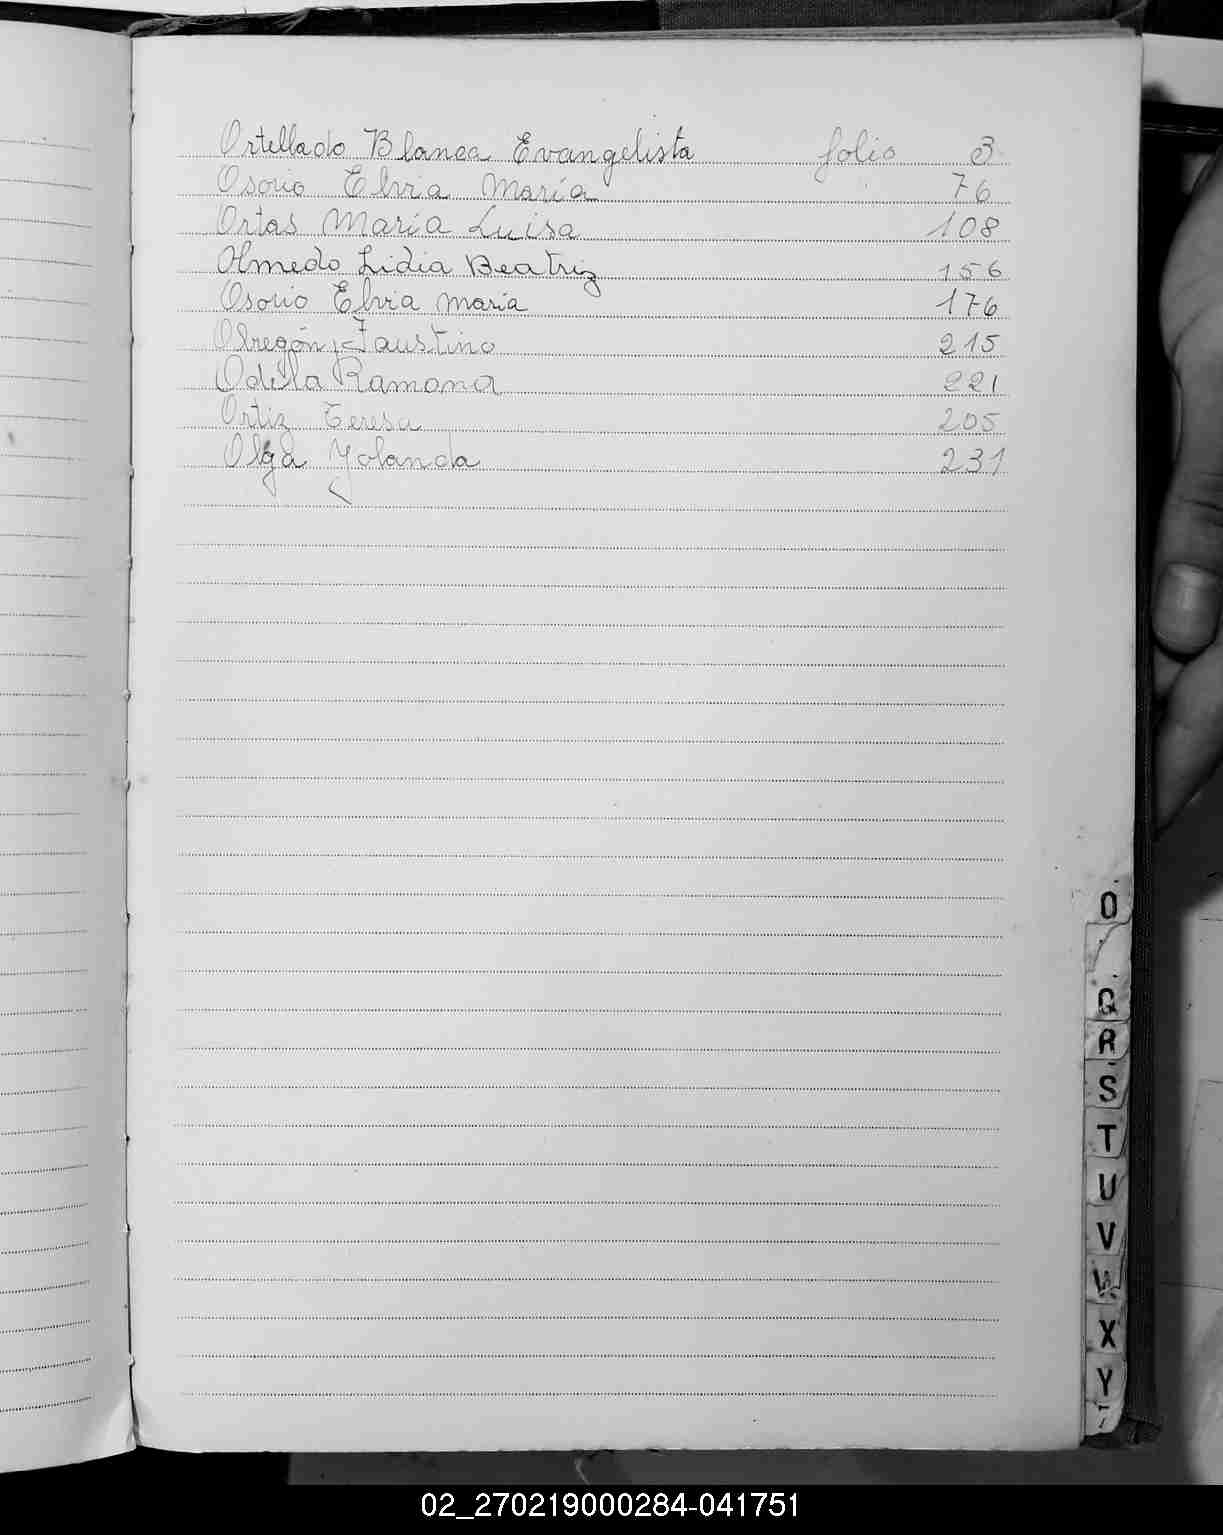 Ortellado Blanca Evangelista folio 3
Osorio Elvia María 76
Ortas María Luisa 108
Olmedo Lidia Beatriz 156
Osorio Elvia María 176
Obregón, Faustino 215
Odela Ramona 221
Ortiz Teresa 205
Olga Yolanda 231
O
Q
R
S
T
U
V
W
X
Y
Z
02_270219000284-041751